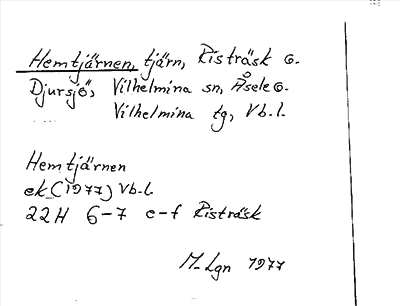 Hemtjärnen, tjärn, Risträsk o.
Djursjö, Vilhelmina sn, Åsele o.
Vilhelmina tg, Vb.l.
Hemtjärnen
ek (1977) Vb.l.
22H 6-7 e-f Risträsk
M. Lgn 1977